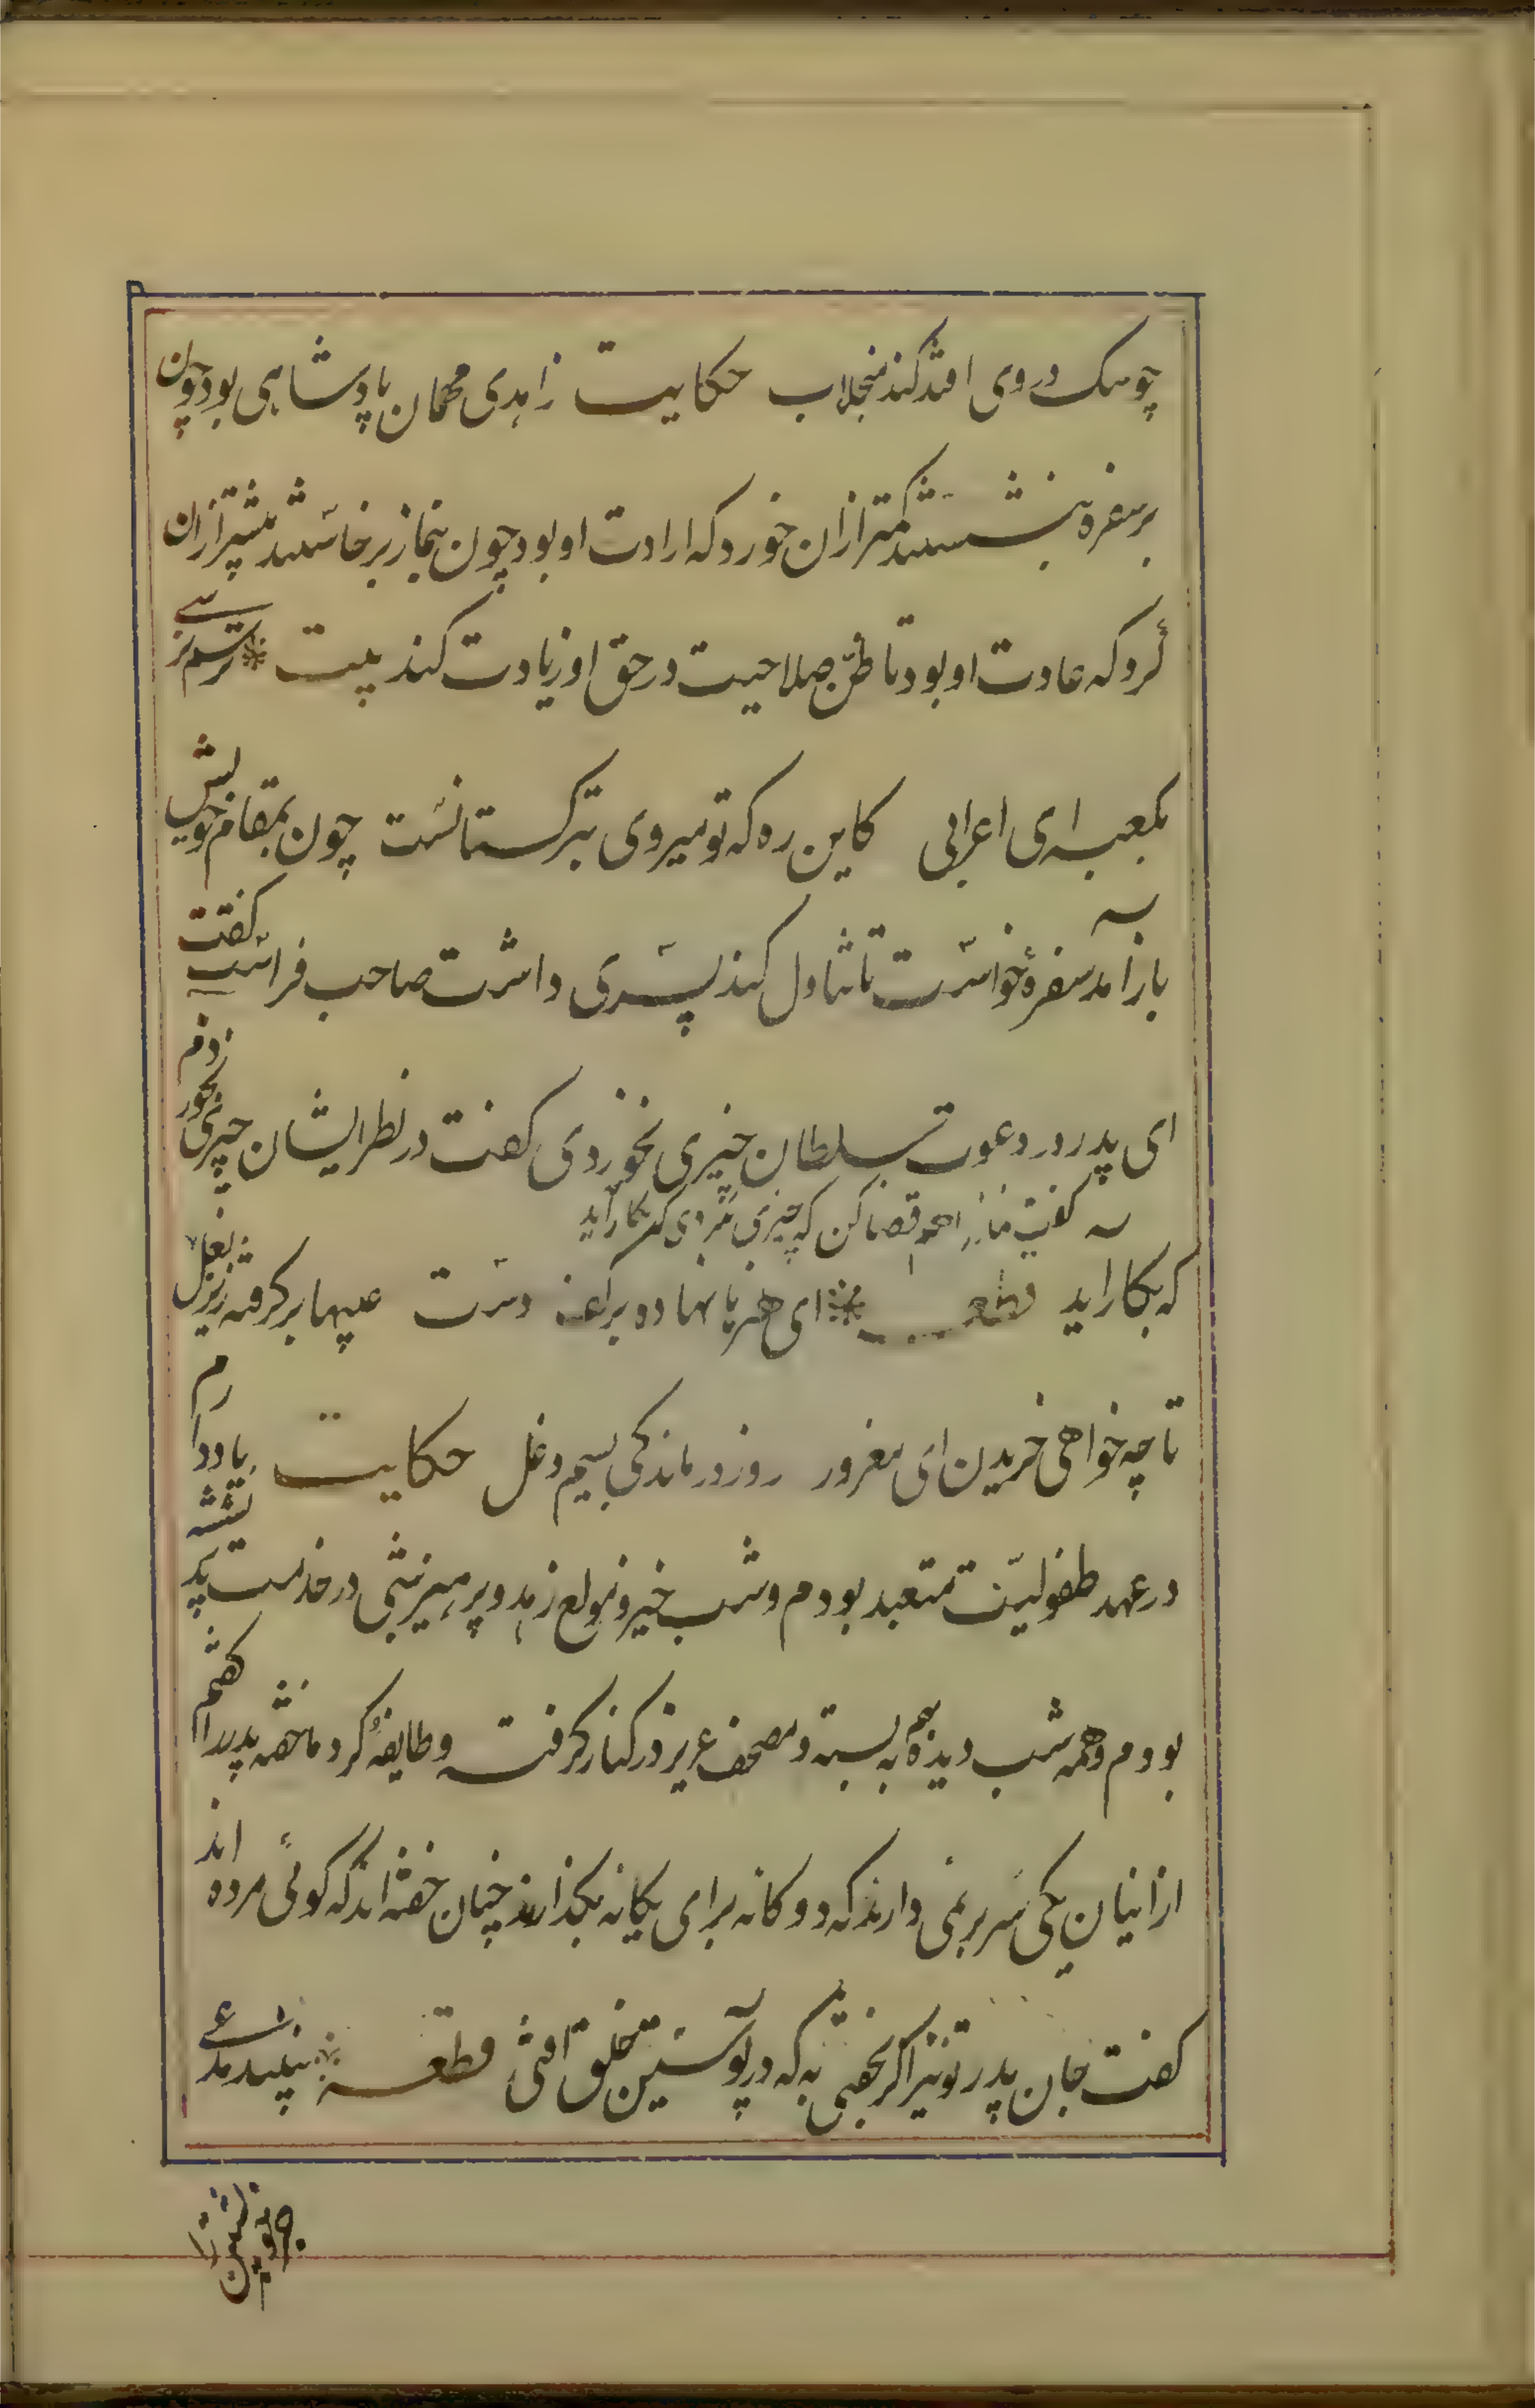 چو سک در وی افتد کند منجلاب حکایت زاهدی مهمان پادشاهی بود چون
بر سفره بنشستند کمتر از ان خورد که ارادت او بود چون بنماز برخاستند بیشتر از ان
کرد که عادت او بود تا ظن صلاحیت در حق او زیادت کند بیت ترسم نرسی
بکعبه ای اعرابی کاین ره که تو میروی بترکستانست چون بمقام خویش
باز آمد سفره خواست تا تناول کند پسری داشت صاحب فراست کفت
ای پدر در دعوت سلطان چیزی نخوردی کفت در نظر ایشان چیزی نخوردم
کفت نماز را هم قضا کن که چیزی نکردی که بکار آید
که بکار اید قطعه ای هنرها نهاده بر کف دست عیبها بر کرفته زیر بغل
تا چه خواهی خریدن ای مغرور روز درماندکی بسیم دغل حکایت یاد دارم
در عهد طفولیت متعبد بودم و شب خیز و مولع زهد و پرهیز شبی در خدمت پدر نشسته
بودم و همه شب دیده بهم نبسته و مصحف عزیز در کنار کرفته و طایفه کرد ما خفته پدر را کفتم
از اینان یکی سر بر نمی دارند که دوکانه برای یکانه بکذارند چنان خفته اند که کوئی مرده اند
کفت جان پدر تو نیز اکر بخفتی به که در پوستین خلق افتی قطعه نبیند مدعی
جز خویشتن را